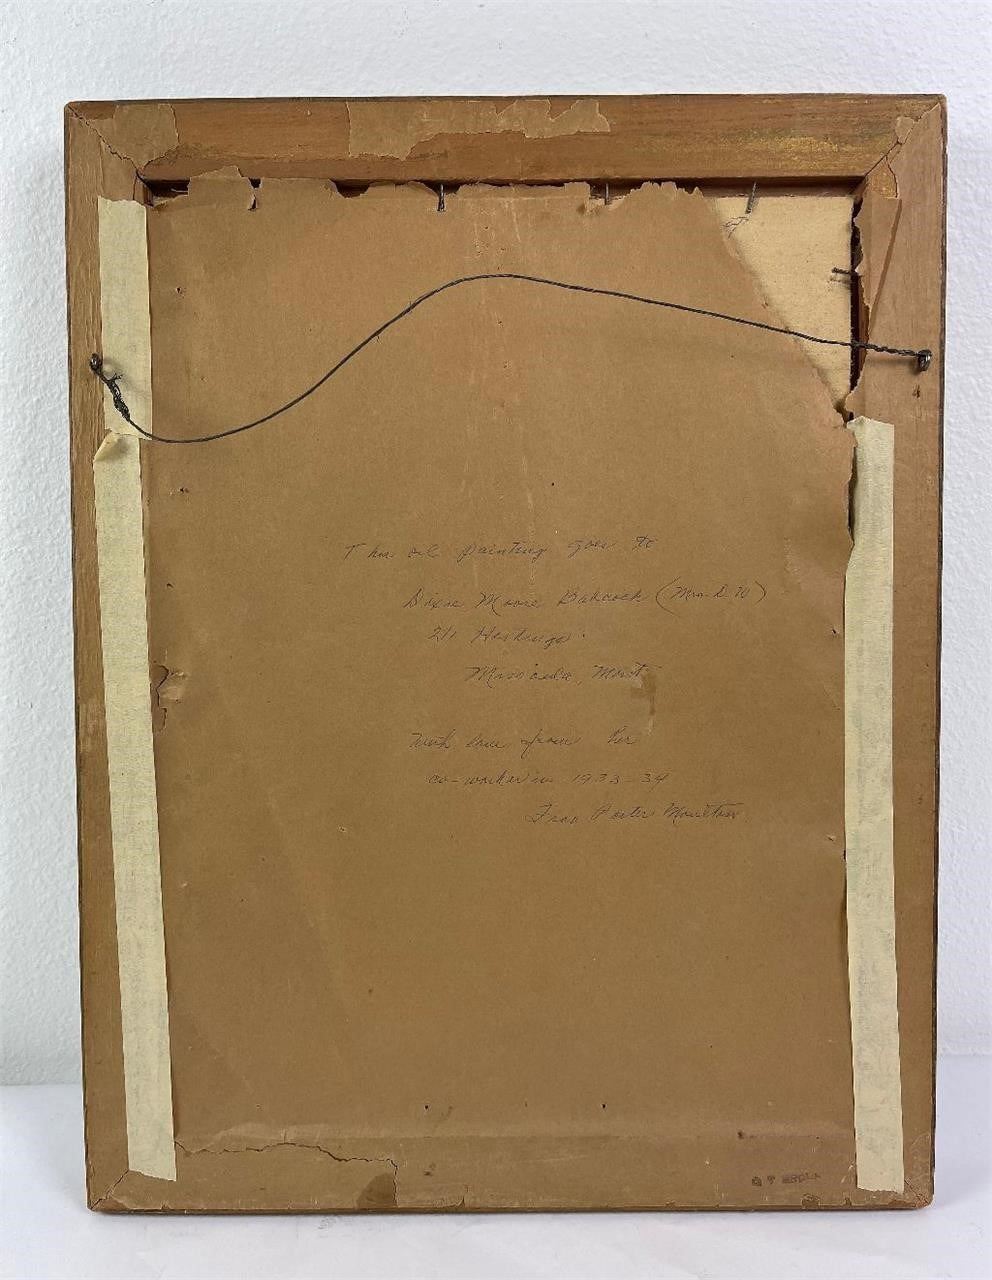 This oil painting goes to
Dixie Moore Babcock (Mrs. D W)
211 Hastings
Missoula, Mont
With love from her
co-worker in 1933-34
Fran Porter Moulton